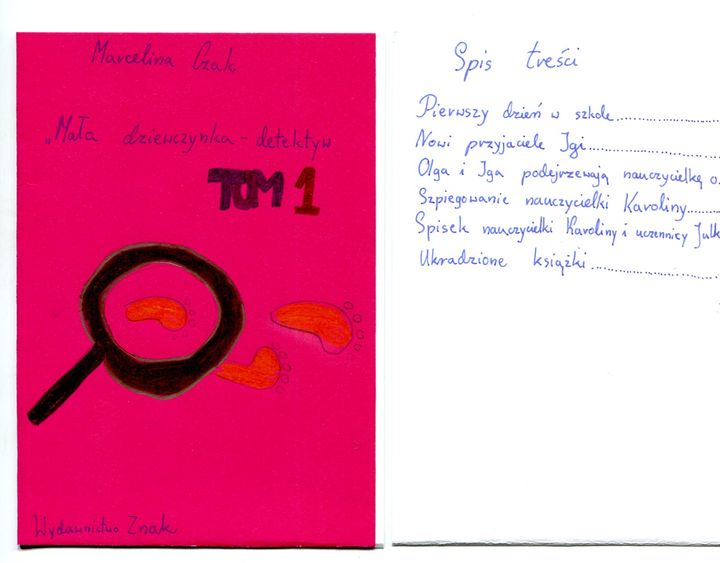 Marcelina Czak
„Mała dziewczynka - detektyw
TOM 1
Wydawnictwo Znak
Spis treści
Pierwszy dzień w szkole
Nowi przyjaciele Igi
Olga i Iga podejrzewają nauczycielkę o
Szpiegowanie nauczycielki Karoliny
Spisek nauczycielki Karoliny i uczennicy Julk
Ukradzione książki